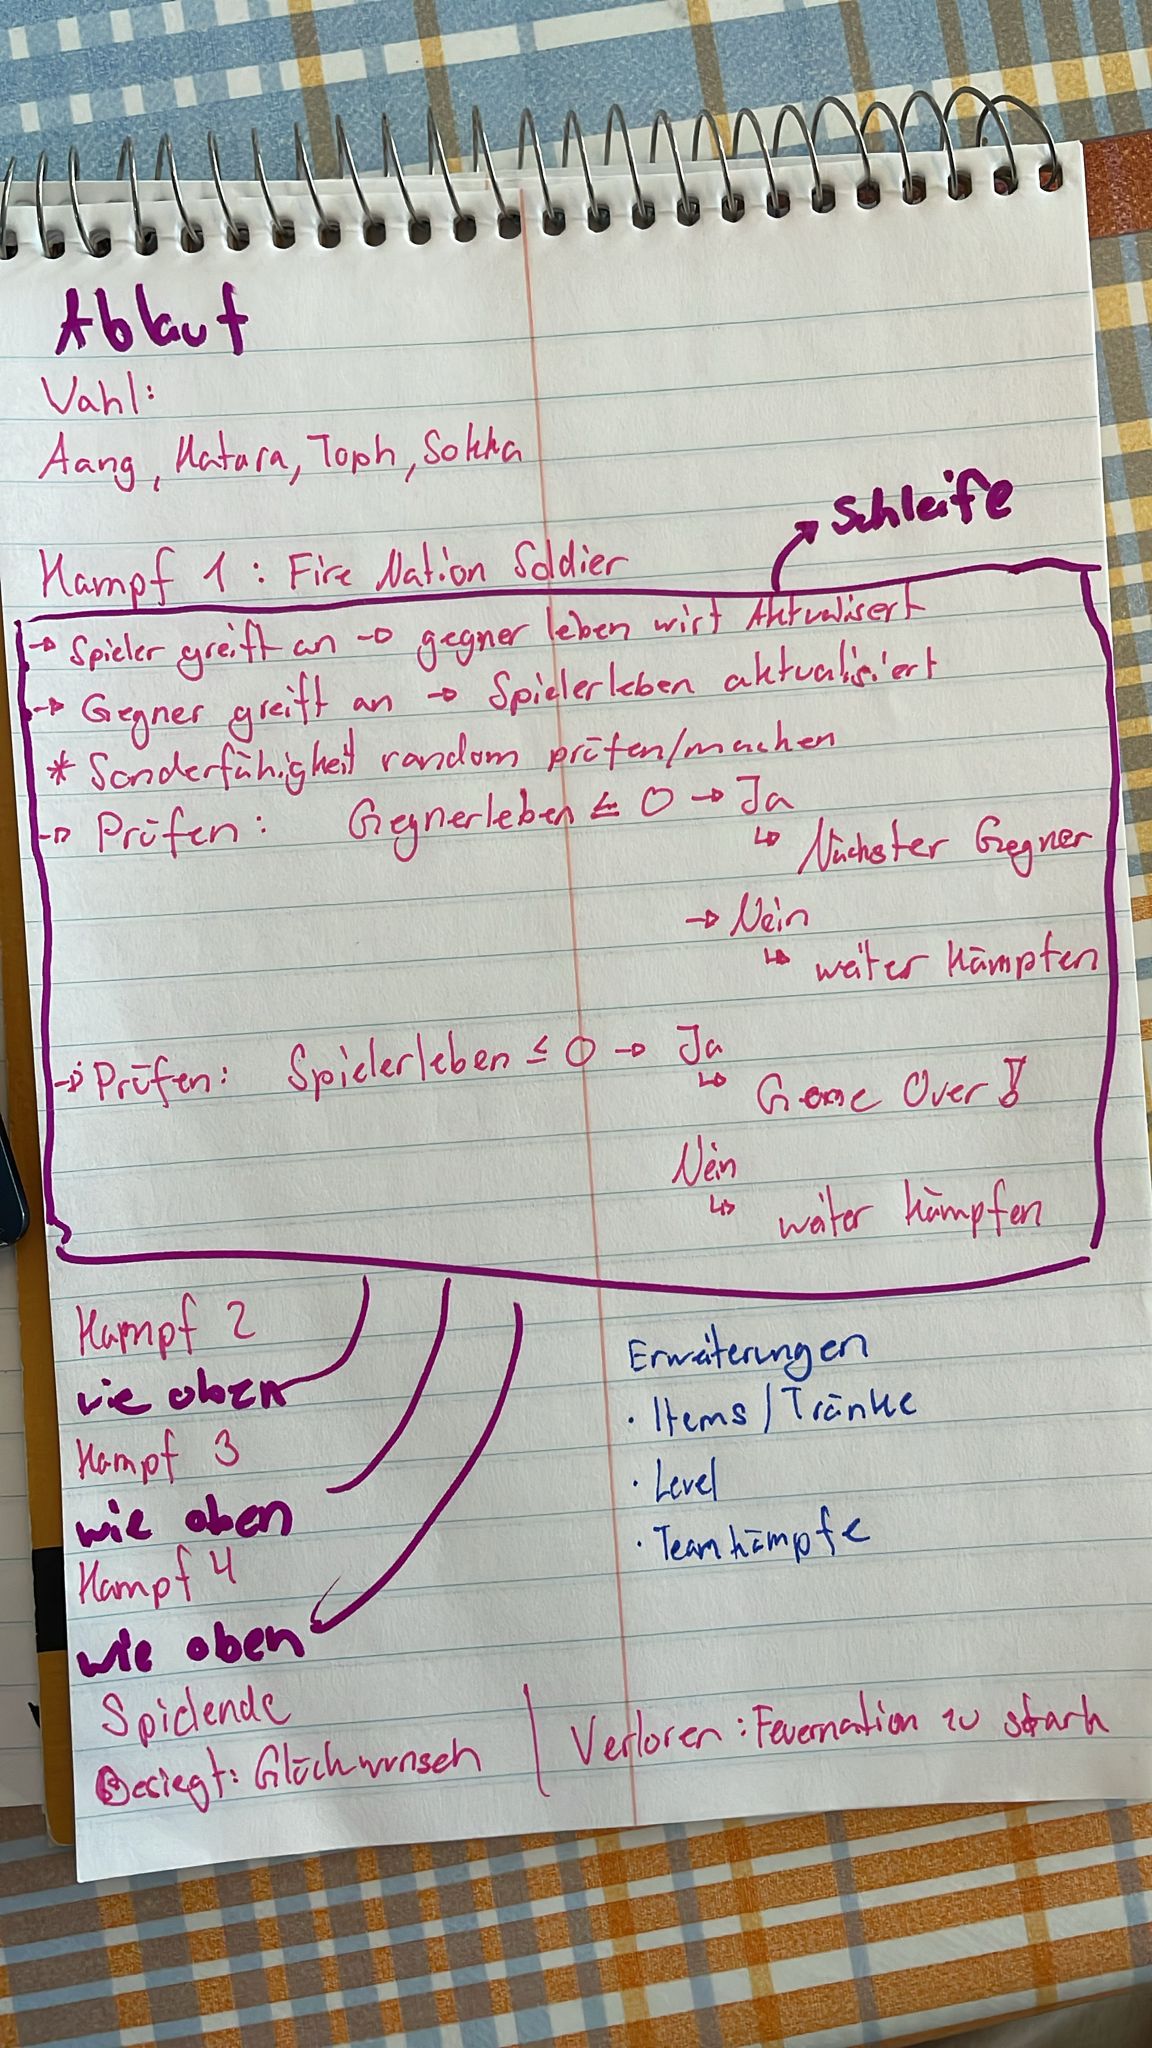 Ablauf
Wahl:
Aang, Katara, Toph, Sokka
Schleife
Kampf 1: Fire Nation Soldier
→ Spieler greift an → gegner leben wirt Aktualisert
→ Gegner greift an → Spielerleben aktualisiert
* Sonderfähigkeit random prüfen/machen
→ Prüfen: Gegnerleben ≤ 0 → Ja
↳ Nächster Gegner
→ Nein
↳ weiter kämpfen
→ Prüfen: Spielerleben ≤ 0 → Ja
↳ Game Over!
Nein
↳ weiter kämpfen
Kampf 2
wie oben
Kampf 3
wie oben
Kampf 4
wie oben
Erweiterungen
· Items/Tränke
· Level
· Teamkämpfe
Spielende
Besiegt: Glückwunsch | Verloren: Feuernation zu stark